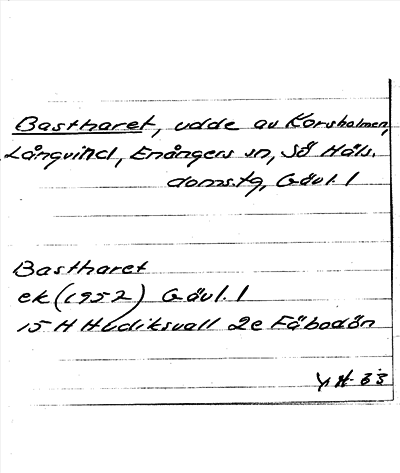 Bastharet, udde av Korsholmen,
Långvind, Enångers sn, Sö Häls.
doms.tg, Gävl. l
Bastharet
ek (1952) Gävl. l
15 H Hudiksvall 2e Fäbodön